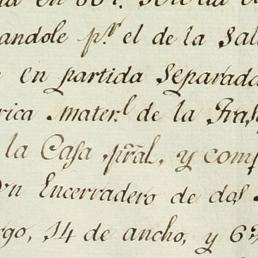 andole p.r el de la Sal
en partida Separada
rica Mater.l de la Fras
la Casa pral, y comp
Un Encerradero de dos
rgo, 14 de ancho, y 6